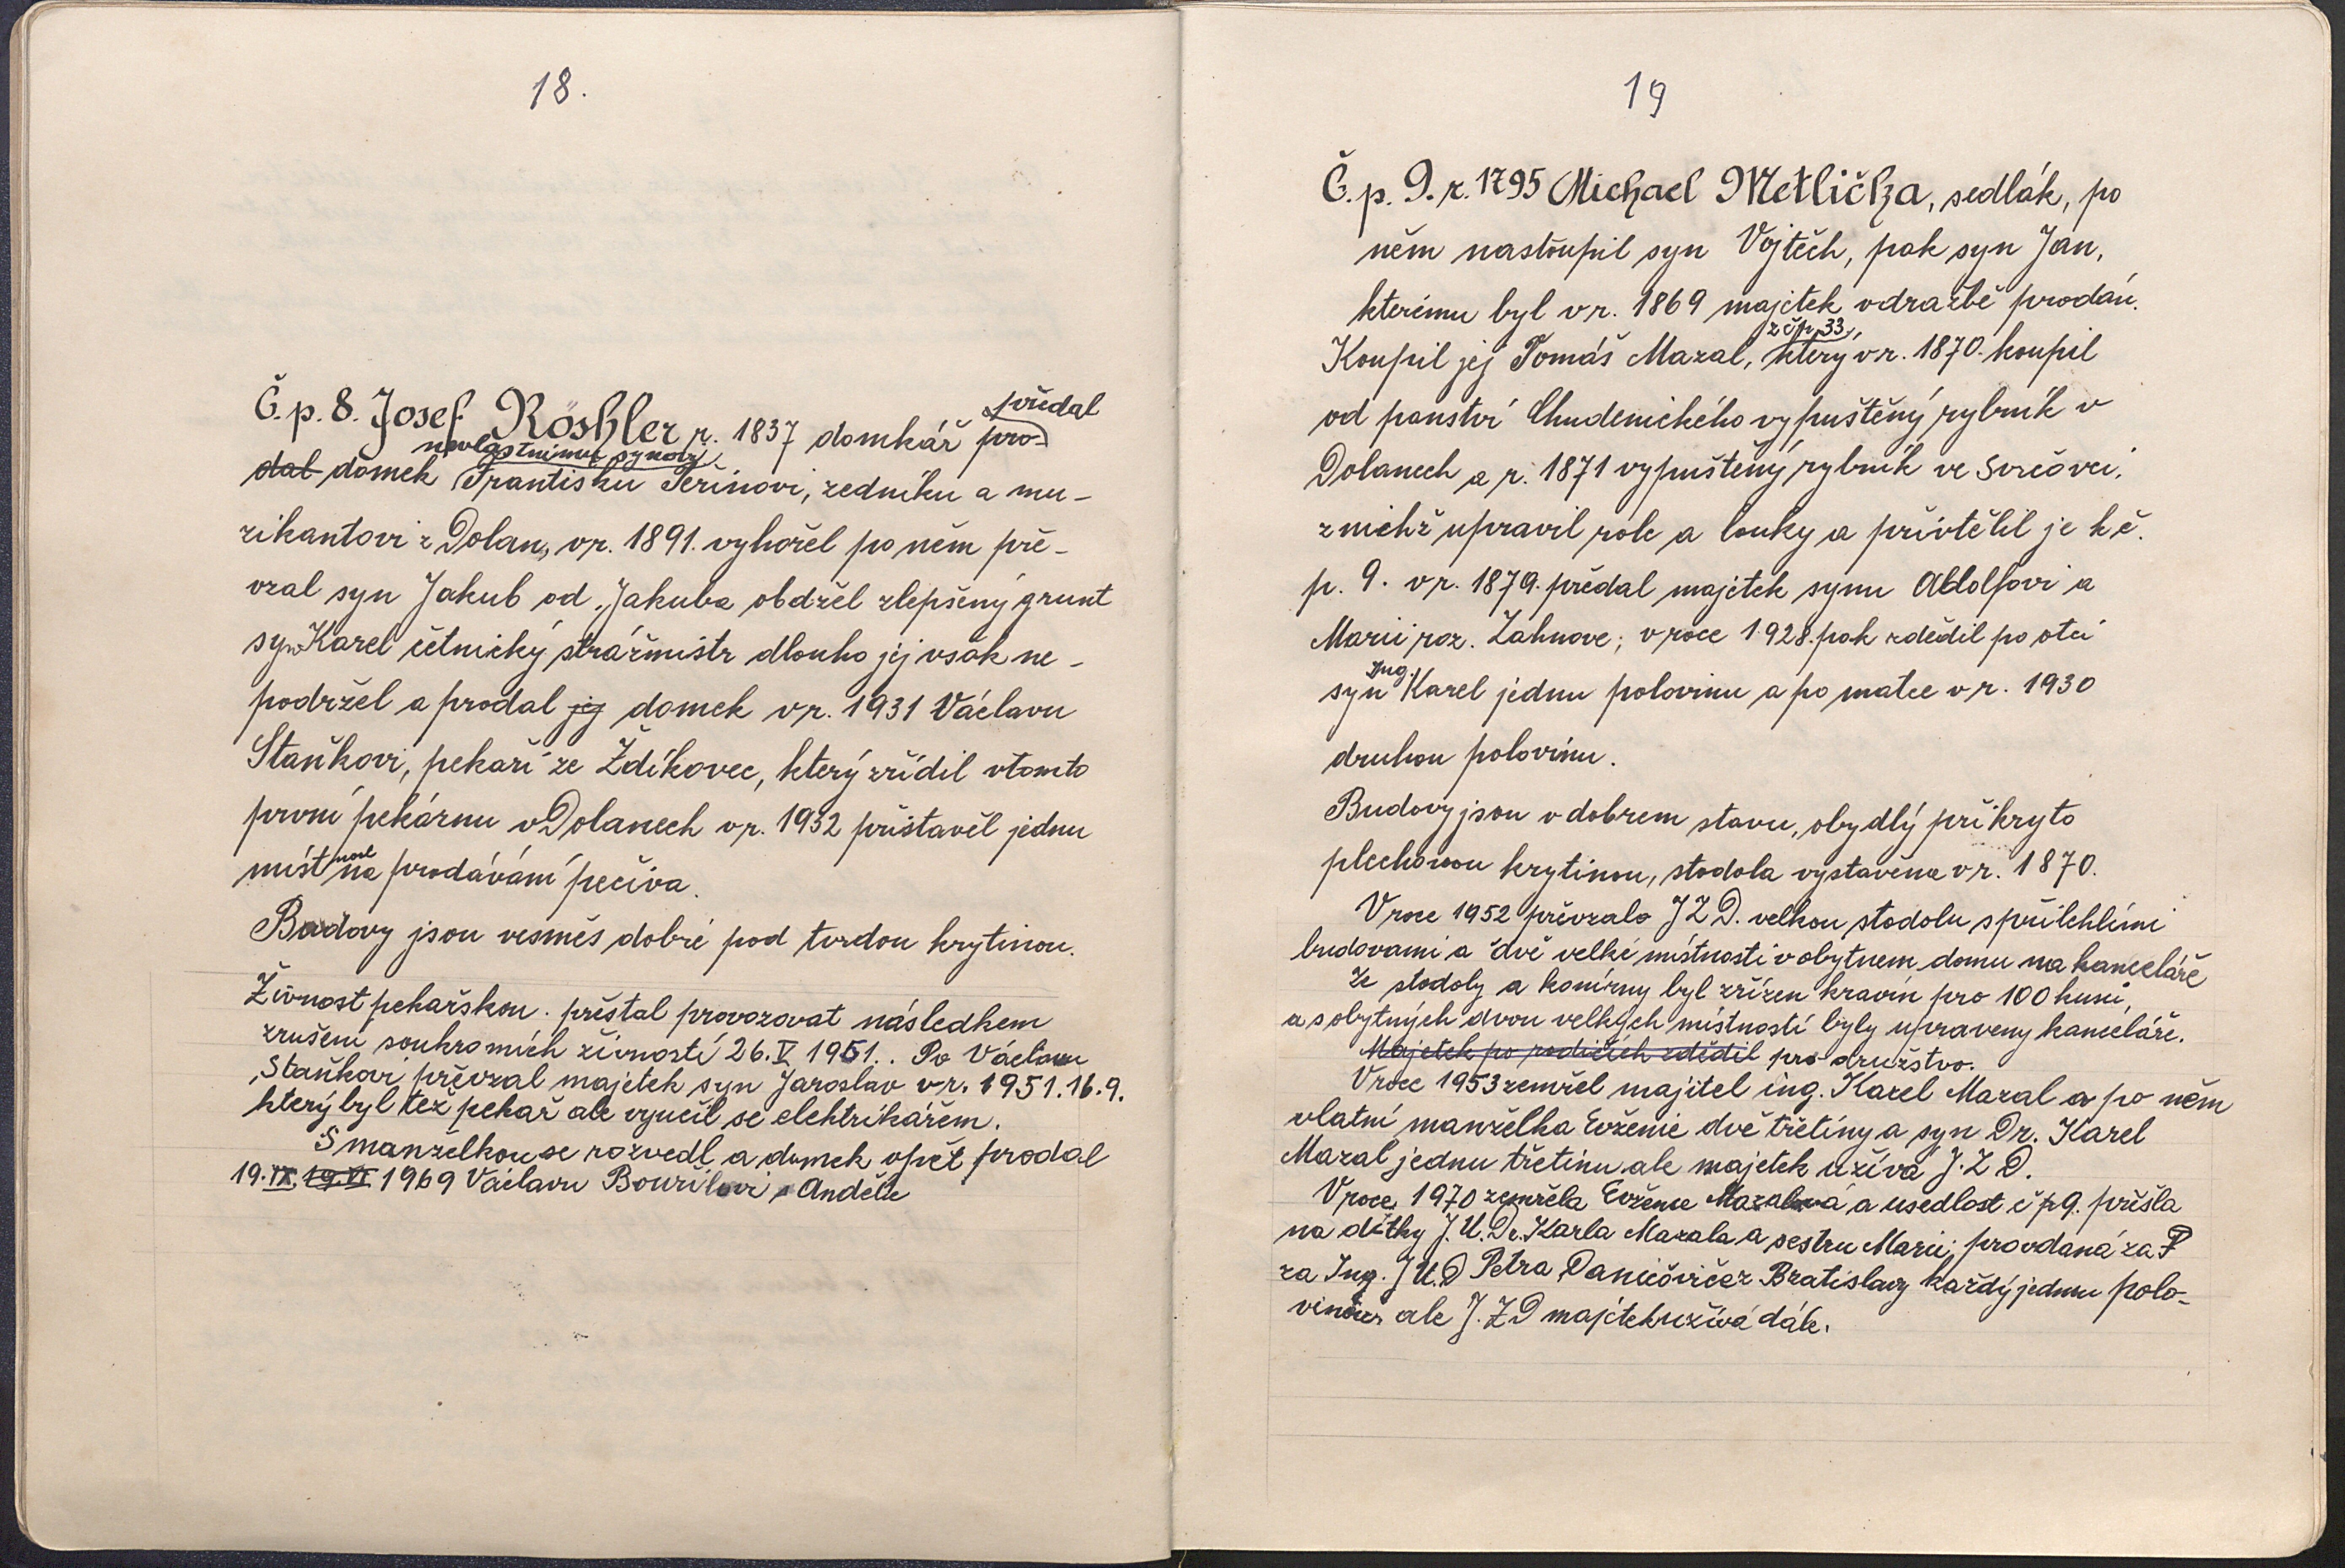 18.
Č. p. 8. Josef Röshler r. 1837 domkář pro-
předal
dal domek Frantisku Peřinovi, zedníku a mu-
nevlastnimu synovi
zikantovi z Dolan, v r. 1891. vyhořel po něm pře-
vzal syn Jakub od Jakuba obdržel zlepšený grunt
syn Karel četnický strážmistr dlouho jej však ne-
podržel a prodal jej domek v r. 1931 Václavu
Staňkovi, pekaři ze Ždíkovec, který zřídil v tomto
první pekárnu v Dolanech v r. 1932 přistavěl jednu
místnost na prodávání pečiva.
Budovy jsou vesměs dobré pod tvrdou krytinou.
Živnost pekařskou přestal provozovat následkem
zrušení soukromích živností 26. V 1951.. Po Václavu
Staňkovi převzal majetek syn Jaroslav v r. 1951. 16. 9.
který byl též pekař ale vyučil se elektrikářem.
S manželkou se rozvedl a domek opět prodal
19. IX. 19. VI 1969 Václavu Bouřilovi a Anděle
19
Č. p. 9. r. 1795 Michael Metlička, sedlák, po
něm nastoupil syn Vojtěch, pak syn Jan,
kterému byl v r. 1869 majetek v dražbě prodán.
z čp. 33,
Koupil jej Tomáš Mazal, který v r. 1870. koupil
od panství Chudenického vypuštěný rybník v
Dolanech a r. 1871 vypuštěný rybník ve Svrčovci,
z nichž upravil role a louky a přivtělil je k č.
p. 9. v r. 1879. předal majetek synu Adolfovi a
Marii roz. Zahnove; v roce 1928. pak zdědil po otci
syn Ing. Karel jednu polovinu a po matce v r. 1930
druhou polovinu.
Budovy jsou v dobrem stavu, obydlý přikryto
plechovou krytinou, stodola vystavěna v r. 1870.
V roce 1952 převzalo J Z D. velkou stodolu s přilehlími
budovami a dvě velké místnosti v obytnem domu na kanceláře
Ze stodoly a konírny byl zřízen kravín pro 100 kusů,
a s obytných dvou velkých místností byly upraveny kanceláře.
Majetek po rodičích zdědil pro družstvo.
V roce 1953 zemřel majitel ing. Karel Mazal a po něm
vlatní manželka Evženie dvě třetiny a syn Dr. Karel
Mazal jednu třetinu ale majetek užívá J. Z D.
V roce 1970 zemřela Evženie Mazalová a usedlost č p 9. přešla
na dítky J. U. Dr. Karla Mazala a sestru Marii, provdaná za P
za Ing. J U. D Petra Daničoviče z Bratislavy každý jednu polo-
vinou ale J. Z D majetek užívá dále.